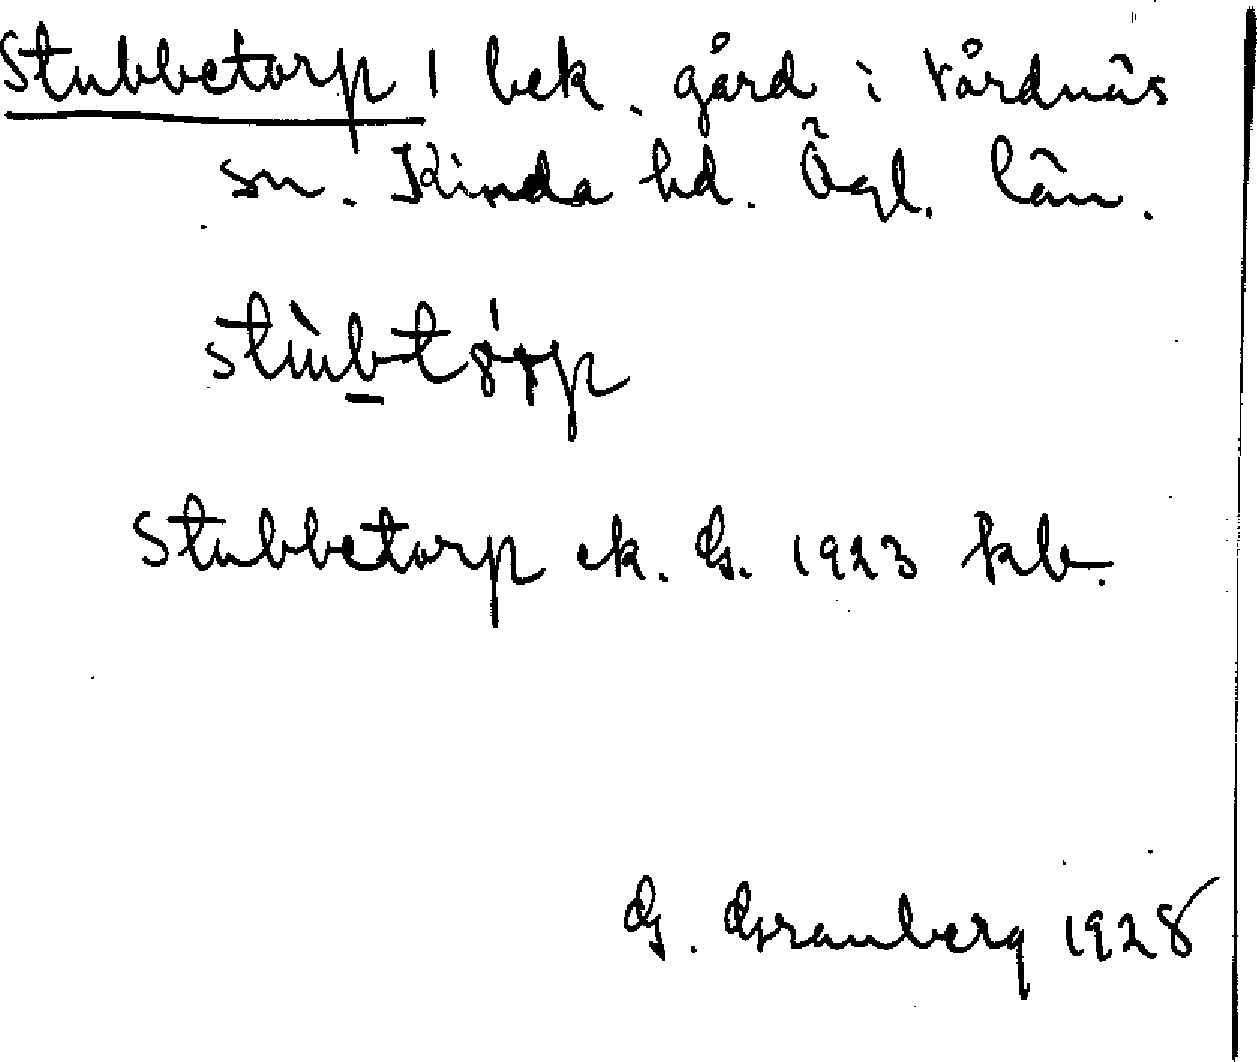 Stubbetorp 1 bek. gård i Vårdnäs
sn. Kinda hd. Ögl. län.
stubtorp
Stubbetorp ek. G. 1923 kb.
G. Granberg 1928